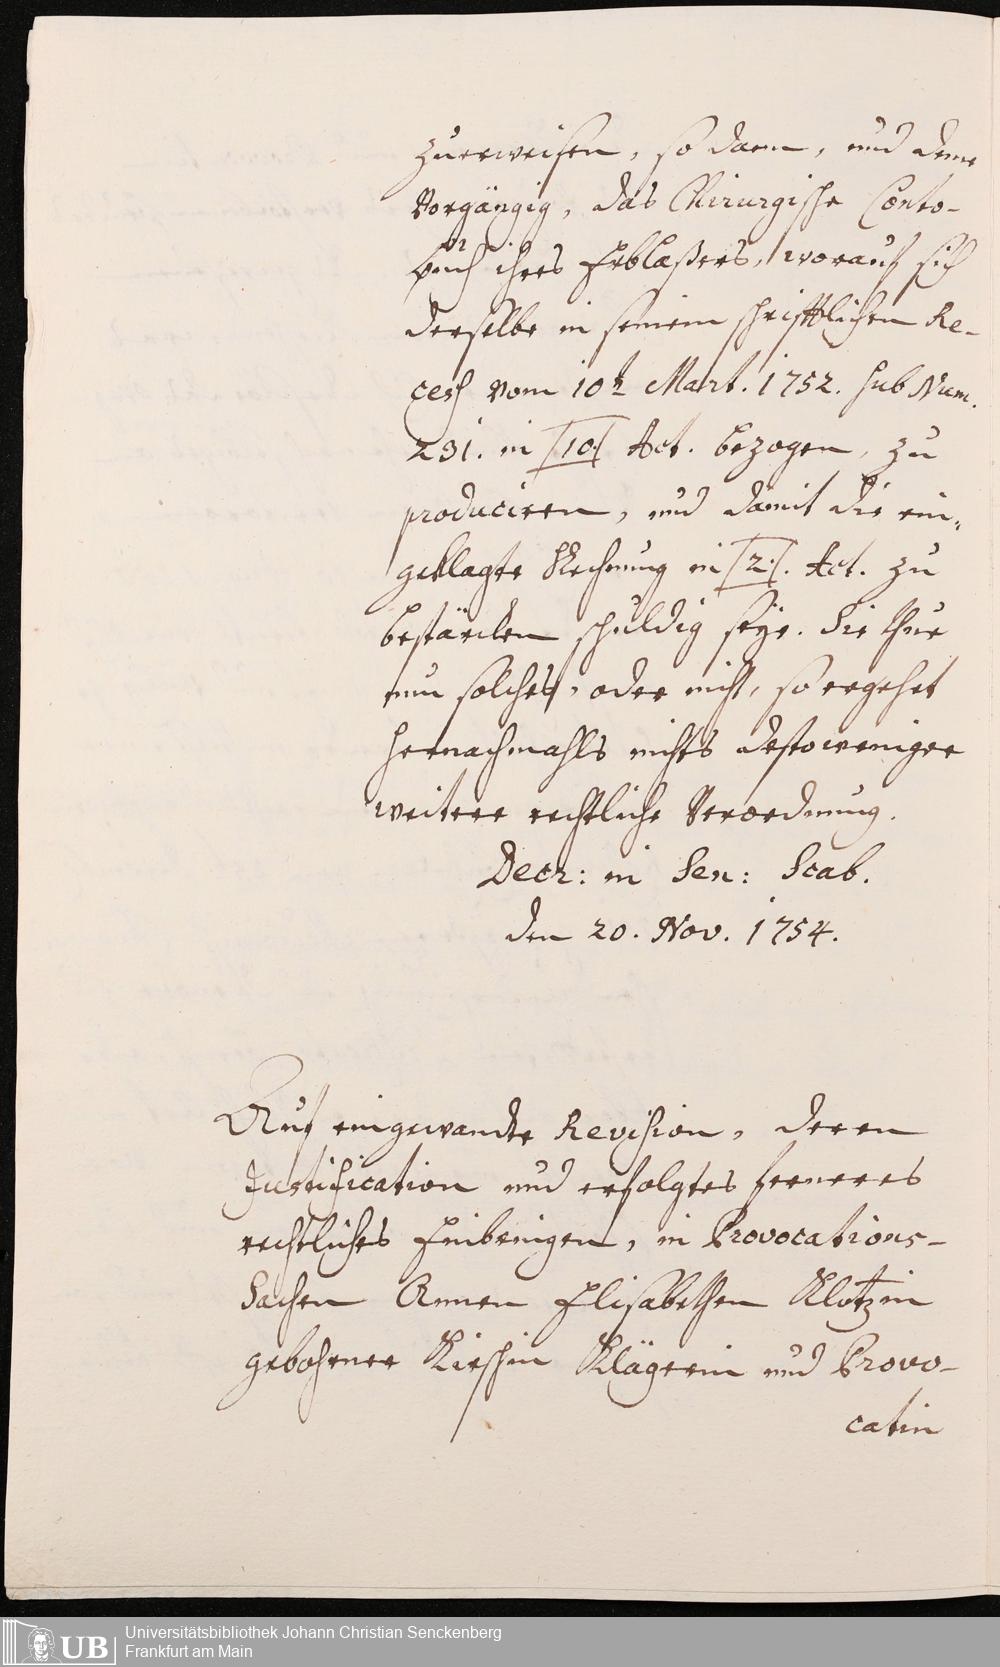 zuerweisen, so dann, und deme
Vorgängig, das Chirurgische Conto-
buch ihres Erblaßers, worauf sich
derselbe in seinem schrifftlichen Re-
cess vom 10ten Mart. 1752. sub Num.
231. in [10] Act. bezogen, zu
produciren, und damit die ein-
geklagte Rechnung in [2]. Act. zu
bestärcken schuldig seye. Sie thue
nun solches, oder nicht, so ergehet
hernachmahls nichts destoweniger
weitere rechtliche Verordnung.
Decr: in Sen: Scab.
den 20. Nov. 1754.
Auf eingewandte Revision, deren
Justification und erfolgtes ferneres
rechtliches Einbringen, in Provocations-
Sachen Annen Elisabethen Klotzin
gebohrner Kirschin Klägerin und Provo-
catin
Universitätsbibliothek Johann Christian Senckenberg
Frankfurt am Main
UB